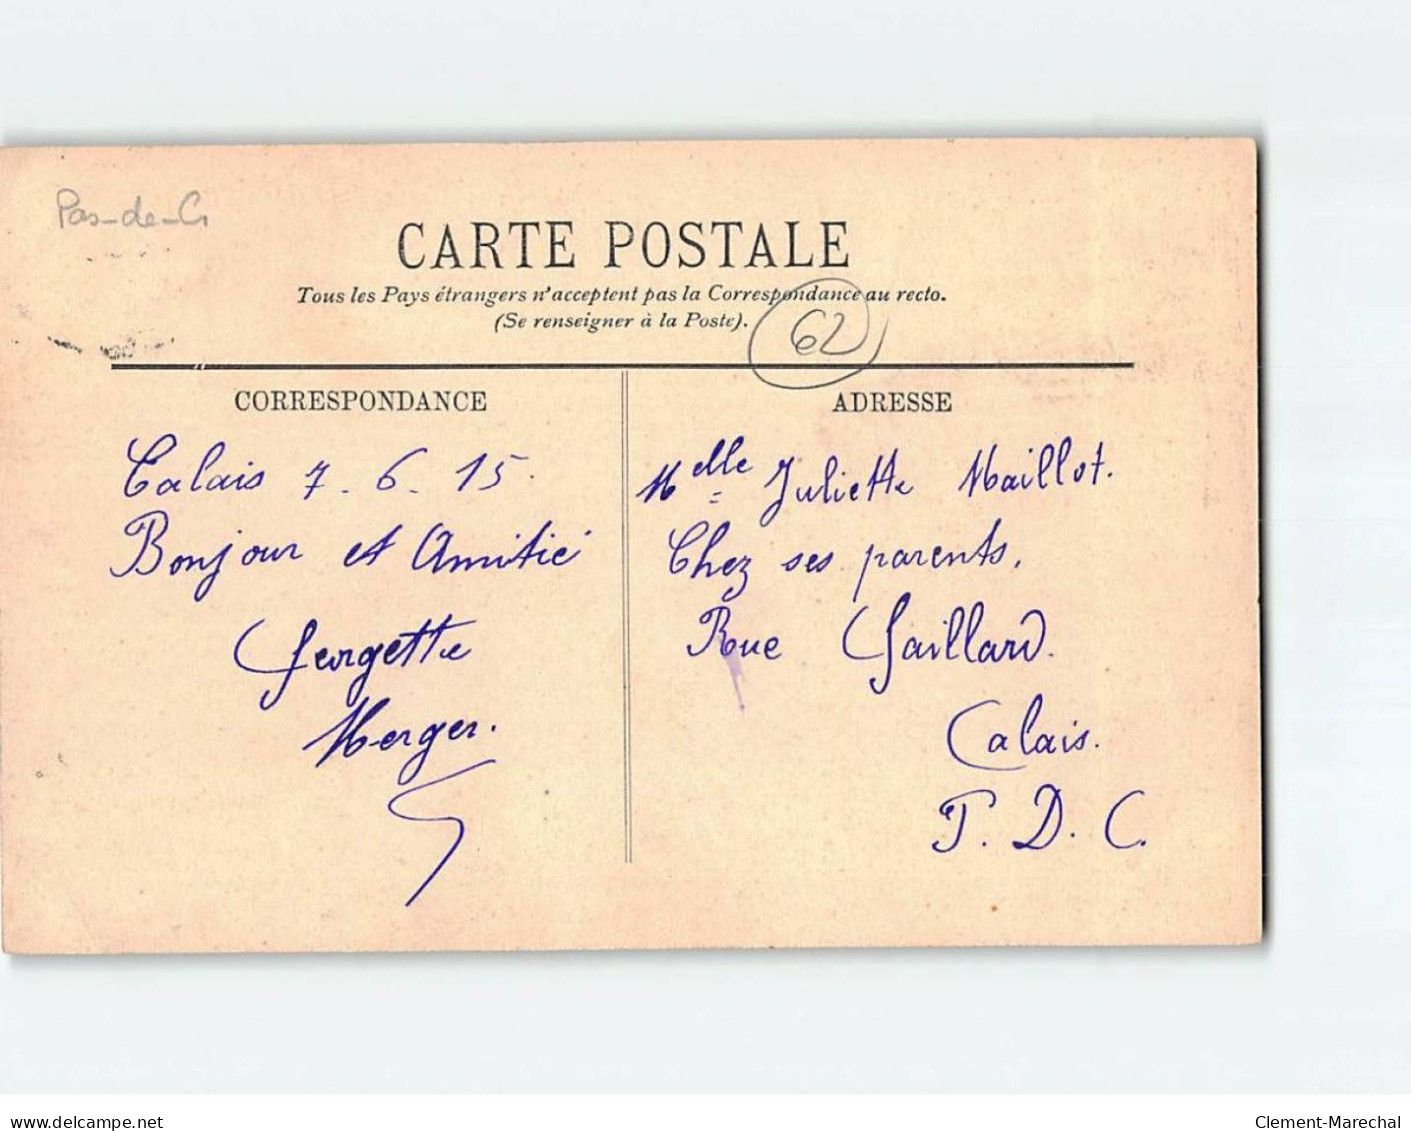 Pas-de-C
CARTE POSTALE
Tous les Pays étrangers n'acceptent pas la Correspondance au recto.
(Se renseigner à la Poste).
62
CORRESPONDANCE
Calais 7.6.15.
Bonjour et Amitié
Georgette
Merger.
ADRESSE
Melle Juliette Maillot.
Chez ses parents.
Rue Gaillard.
Calais.
P. D. C.
www.delcampe.net
Clement-Marechal